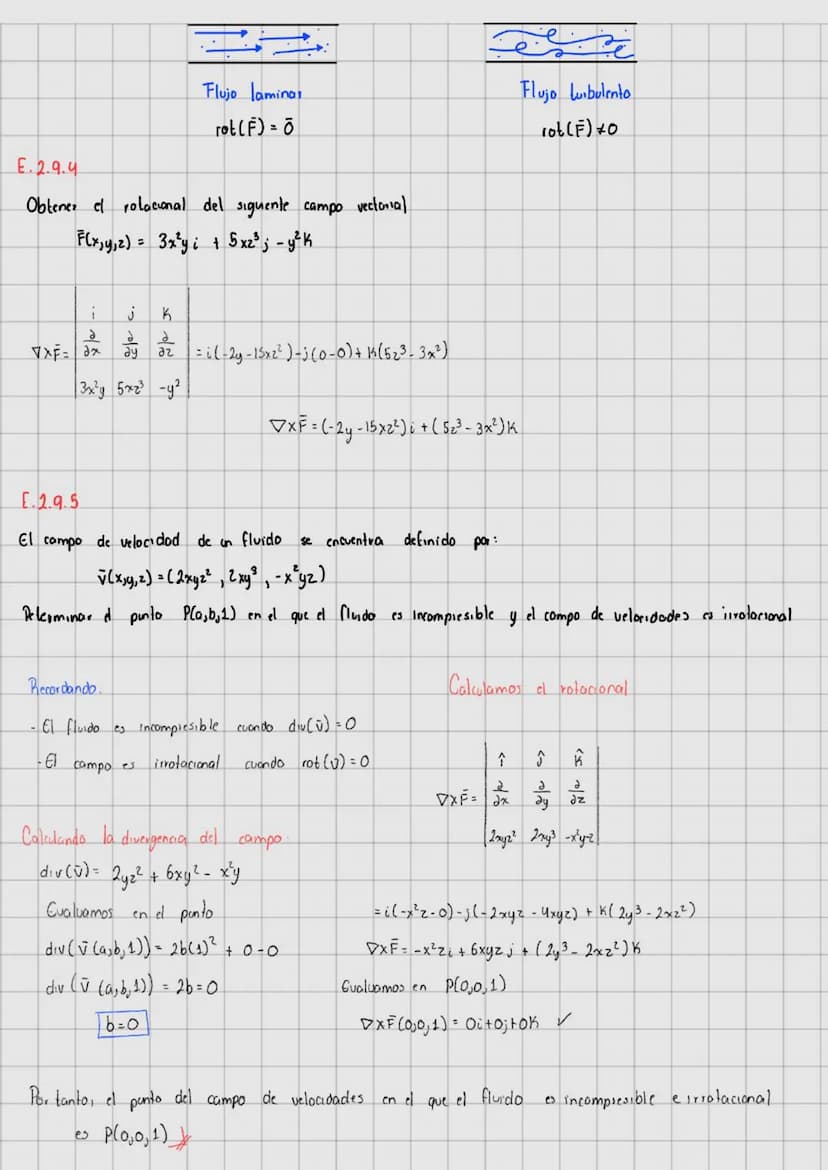 Flujo laminar
Flujo turbulento
rot(F̄) = 0̄
rot(F̄) ≠ 0
E.2.9.4
Obtener el rotacional del siguiente campo vectorial
F̄(x,y,z) = 3x²y i + 5xz³ j - y² K
i j K
∇×F̄ = ∂/∂x ∂/∂y ∂/∂z = i(-2y - 15xz²) - j(0-0) + K(5z³ - 3x²)
3x²y 5xz³ -y²
∇×F̄ = (-2y - 15xz²) i + (5z³ - 3x²) K
E.2.9.5
El campo de velocidad de un fluido se encuentra definido por:
v̄(x,y,z) = (2xyz², 2xy³, -x²yz)
Determinar el punto P(a,b,1) en el que el fluido es incompresible y el campo de velocidades es irrotacional
Recordando.
- El fluido es incompresible cuando div(v̄) = 0
- El campo es irrotacional cuando rot(v̄) = 0
Calculando la divergencia del campo
div(v̄) = 2yz² + 6xy² - x²y
Evaluamos en el punto
div(v̄(a,b,1)) = 2b(1)² + 0 - 0
div(v̄(a,b,1)) = 2b = 0
b = 0
Calculamos el rotacional
î ĵ k̂
∇×F̄ = ∂/∂x ∂/∂y ∂/∂z
2xyz² 2xy³ -x²yz
= i(-x²z - 0) - j(-2xyz - 4xyz) + K(2y³ - 2xz²)
∇×F̄ = -x²z i + 6xyz j + (2y³ - 2xz²) K
Evaluamos en P(0,0,1)
∇×F̄(0,0,1) = 0i + 0j + 0K ✓
Por tanto, el punto del campo de velocidades en el que el fluido es incompresible e irrotacional
es P(0,0,1)